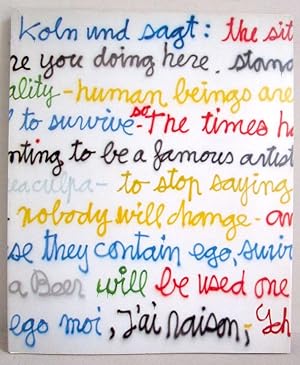 Koln und sagt: the sit
re you doing here. stand
ality - human beings are
l to survive - so The times ha
nting to be a famous artist
eaculpa - to stop saying
. nobody will change - an
se they contain ego, surviv
a Beer will be used one
ego moi, J'ai raison, - Ich